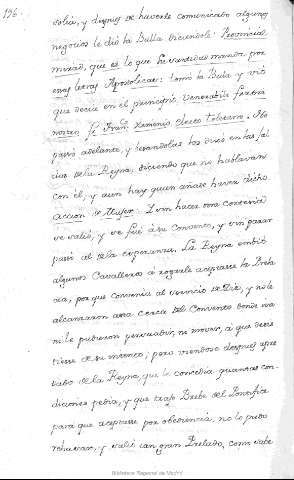 196.
solia, y despues de haverle comunicado algunos
negocios le dió la Bulla diciendole: Reverendisi
mirad, que es lo que su santidad manda por
esas letras Apostolicas: tomó la Bula y vió
que decia en el principio. Venerabili fratri
nostro Fr. Fran.co Ximenio, electo toletano. No
pasó adelante, y besandolas las dexó en las fal
das de la Reyna, diciendo que no hablavan
con él, y aun hay quien añade haver dicho.
accion de Muger. I sin hacer otra cortesia
se salió, y se fue á su Convento, y sin parar
pasó al de la esperanza. La Reyna embió
algunos Cavalleros á rogarle aceptasse la Prela
cia, por que convenia al servicio de Dios, y no le
alcanzaron asta cerca del Convento donde iva
ni le pudieron persuadir, ni mover, á que desis
tiesse de su intento; pero siendose despues apre
tado de la Reyna, que le concedia quantas con
diciones pedia, y que trajo Brebe del Pontifice
para que aceptasse por obediencia, no lo pudo
rehusar, y salió tan gran Prelado, como sabe
Biblioteca Regional de Madrid